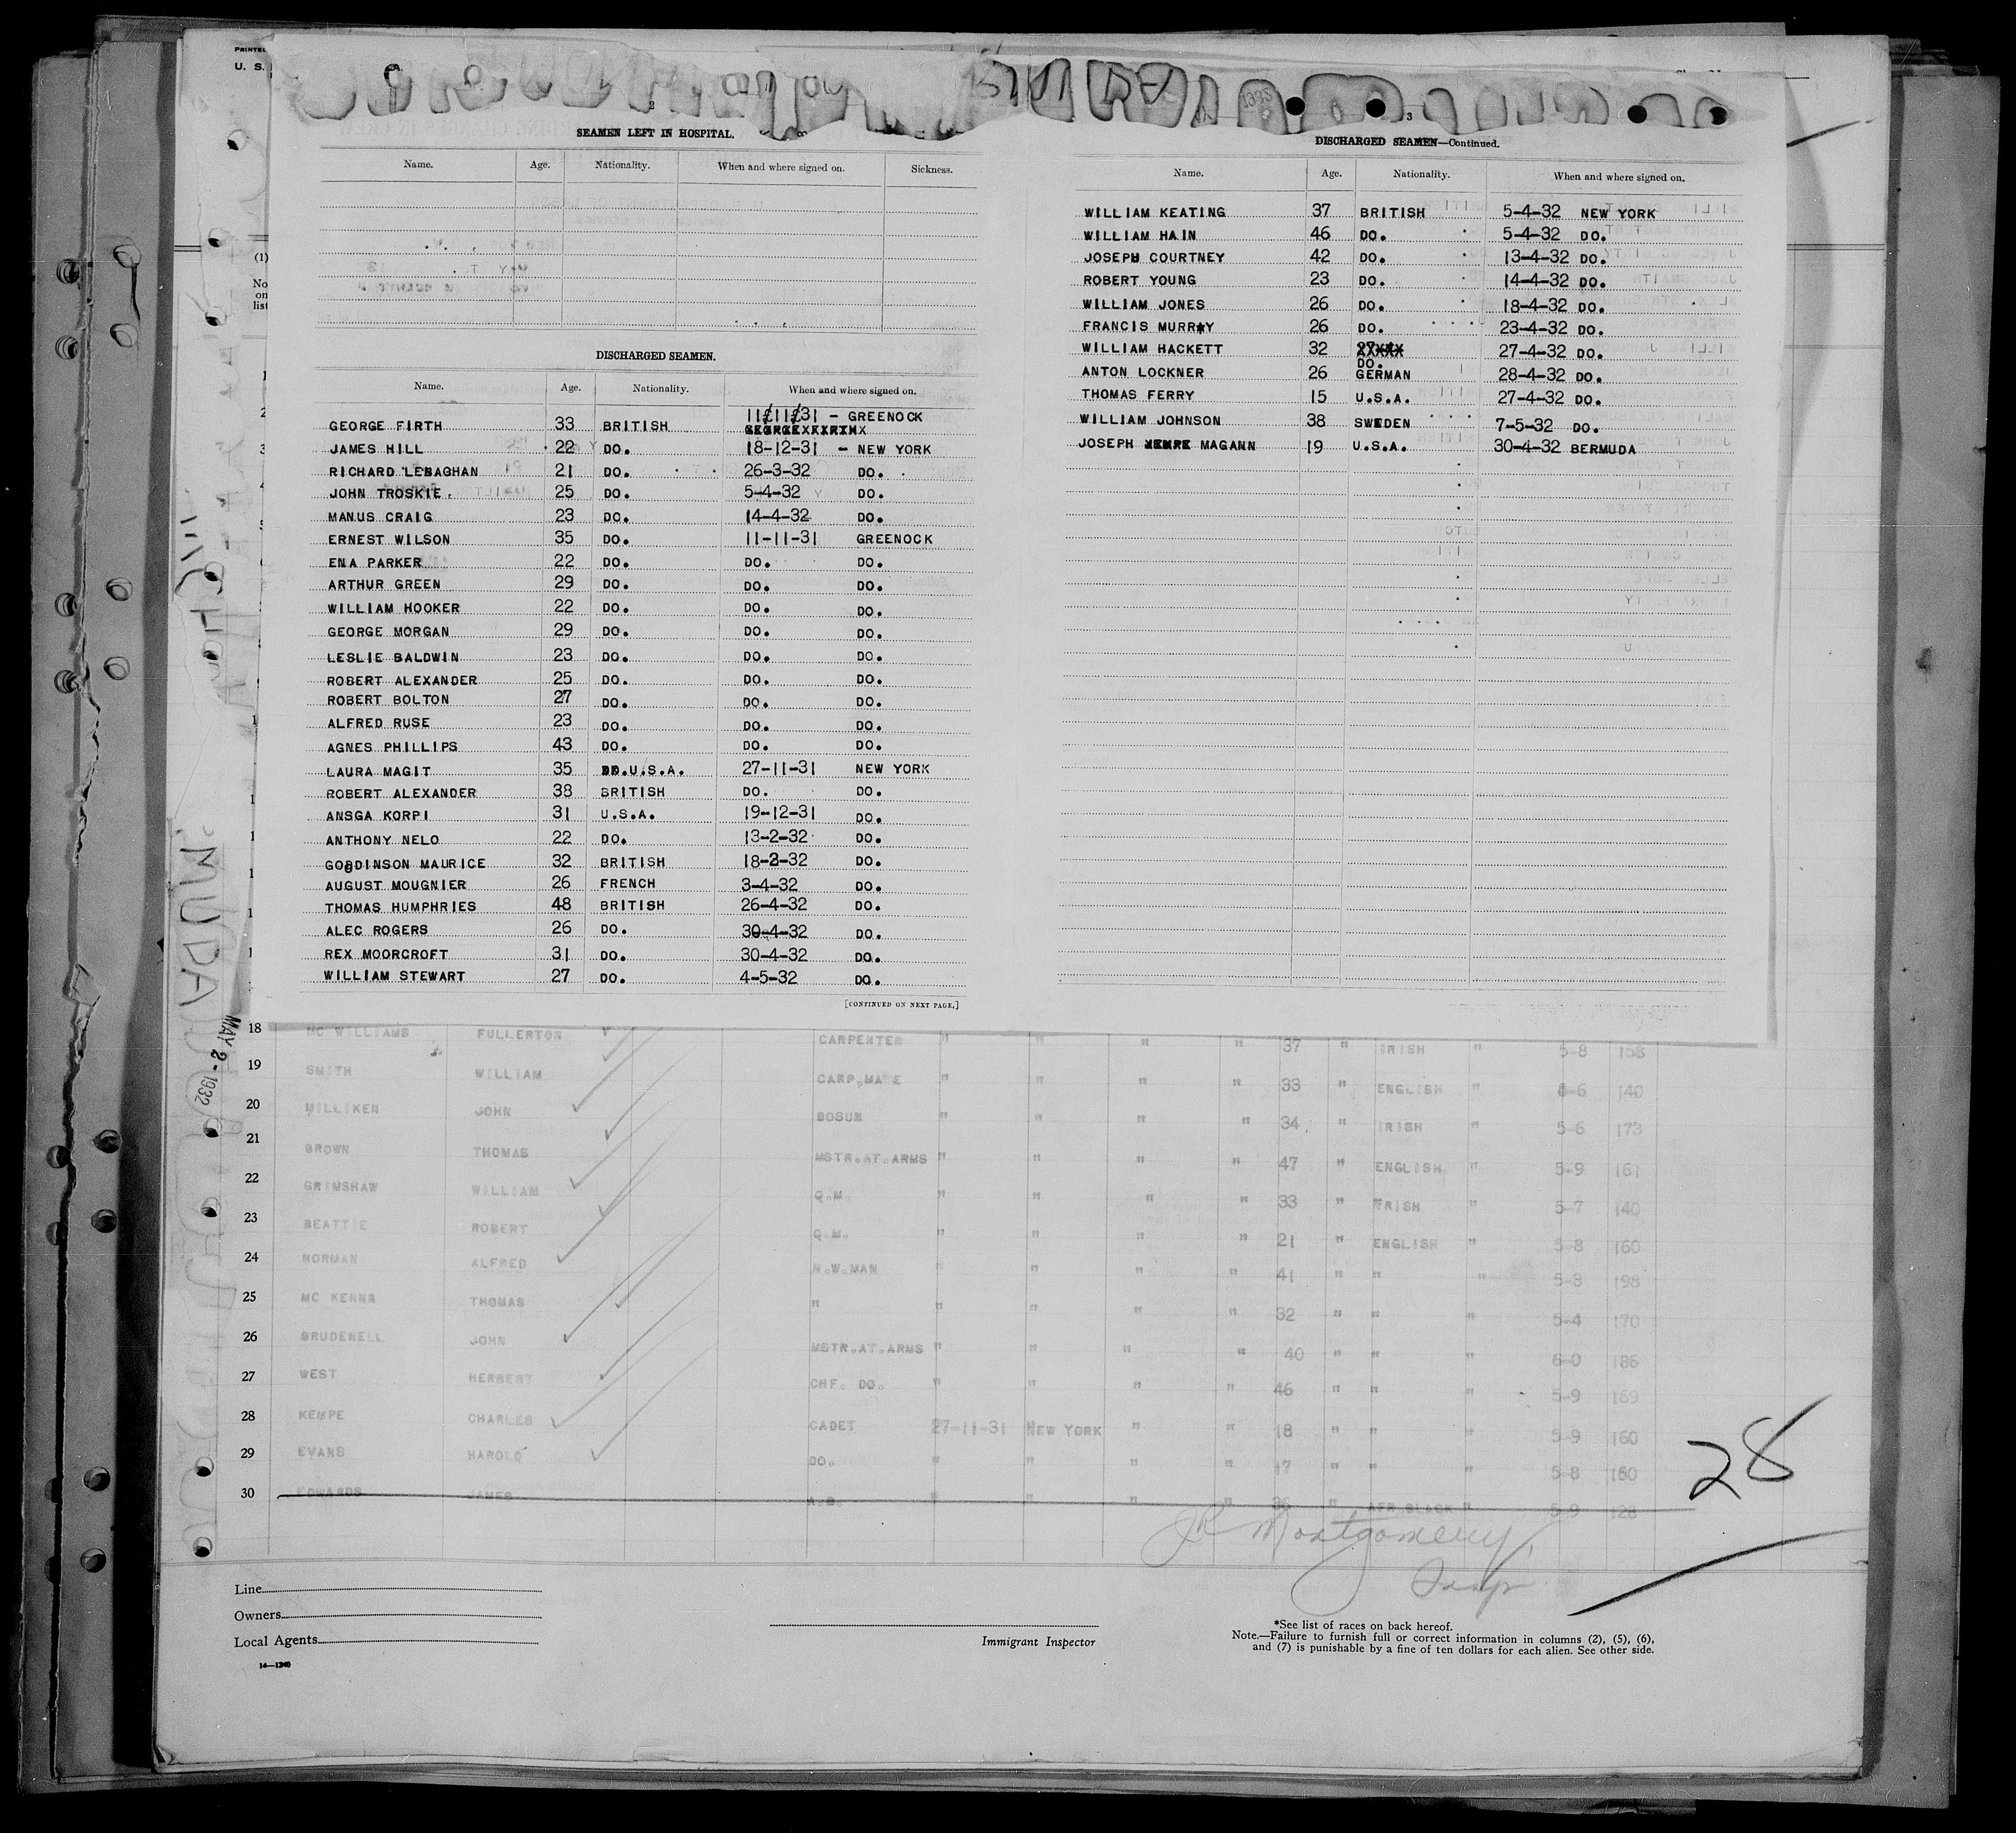 PRINTED
U. S.
2
SEAMEN LEFT IN HOSPITAL.
Name. Age. Nationality. When and where signed on. Sickness.
DISCHARGED SEAMEN.
Name. Age. Nationality. When and where signed on.
GEORGE FIRTH 33 BRITISH 11/11/31 - GREENOCK
JAMES HILL 22 DO. 18-12-31 - NEW YORK
RICHARD LENAGHAN 21 DO. 26-3-32 DO.
JOHN TROSKIE. 25 DO. 5-4-32 DO.
MANUS CRAIG 23 DO. 14-4-32 DO.
ERNEST WILSON 35 DO. 11-11-31 GREENOCK
ENA PARKER 22 DO. DO. DO.
ARTHUR GREEN 29 DO. DO. DO.
WILLIAM HOOKER 22 DO. DO. DO.
GEORGE MORGAN 29 DO. DO. DO.
LESLIE BALDWIN 23 DO. DO. DO.
ROBERT ALEXANDER 25 DO. DO. DO.
ROBERT BOLTON 27 DO. DO. DO.
ALFRED RUSE 23 DO. DO. DO.
AGNES PHILLIPS 43 DO. DO. DO.
LAURA MAGIT 35 DO. U.S.A. 27-11-31 NEW YORK
ROBERT ALEXANDER 38 BRITISH DO. DO.
ANSGA KORPI 31 U.S.A. 19-12-31 DO.
ANTHONY NELO 22 DO. 13-2-32 DO.
GOODINSON MAURICE 32 BRITISH 18-2-32 DO.
AUGUST MOUGNIER 26 FRENCH 3-4-32 DO.
THOMAS HUMPHRIES 48 BRITISH 26-4-32 DO.
ALEC ROGERS 26 DO. 30-4-32 DO.
REX MOORCROFT 31 DO. 30-4-32 DO.
WILLIAM STEWART 27 DO. 4-5-32 DO.
[CONTINUED ON NEXT PAGE.]
3
DISCHARGED SEAMEN—Continued.
Name. Age. Nationality. When and where signed on.
WILLIAM KEATING 37 BRITISH 5-4-32 NEW YORK
WILLIAM HAIN 46 DO. 5-4-32 DO.
JOSEPH COURTNEY 42 DO. 13-4-32 DO.
ROBERT YOUNG 23 DO. 14-4-32 DO.
WILLIAM JONES 26 DO. 18-4-32 DO.
FRANCIS MURRAY 26 DO. 23-4-32 DO.
WILLIAM HACKETT 32 DO. 27-4-32 DO.
ANTON LOCKNER 26 GERMAN 28-4-32 DO.
THOMAS FERRY 15 U.S.A. 27-4-32 DO.
WILLIAM JOHNSON 38 SWEDEN 7-5-32 DO.
JOSEPH MAGANN 19 U.S.A. 30-4-32 BERMUDA
(1)
No
on
list
MAY 2 - 1932
18 MC WILLIAMS FULLERTON CARPENTER " " " " 37 " IRISH " 5-8 158
19 SMITH WILLIAM CARP.MATE " " " " 33 " ENGLISH " 5-6 140
20 MILLIKEN JOHN BOSUN " " " " 34 " IRISH 5-6 173
21 BROWN THOMAS MSTR.AT.ARMS " " " " 47 " ENGLISH " 5-9 161
22 GRIMSHAW WILLIAM Q.M. " " " " 33 " IRISH " 5-7 140
23 BEATTIE ROBERT Q.M. " " " " 21 " ENGLISH " 5-8 160
24 NORMAN ALFRED N.W.MAN " " " " 41 " " " 5-8 198
25 MC KENNA THOMAS " " " " " 32 " " " 5-4 170
26 BRUDENELL JOHN MSTR.AT.ARMS " " " " 40 " " " 6-0 186
27 WEST HERBERT CHF. DO. " " " " 46 " " " 5-9 169
28 KEMPE CHARLES CADET 27-11-31 NEW YORK " " 18 " " " 5-9 160
29 EVANS HAROLD DO. " " " " 17 " " " 5-8 150
30 EDWARDS JAMES A.B. " " " " 36 " AFR.BLACK " 5-9 128
28
JR Montgomery
Insp
Line
Owners
Local Agents
14—1240
Immigrant Inspector
*See list of races on back hereof.
Note.—Failure to furnish full or correct information in columns (2), (5), (6),
and (7) is punishable by a fine of ten dollars for each alien. See other side.